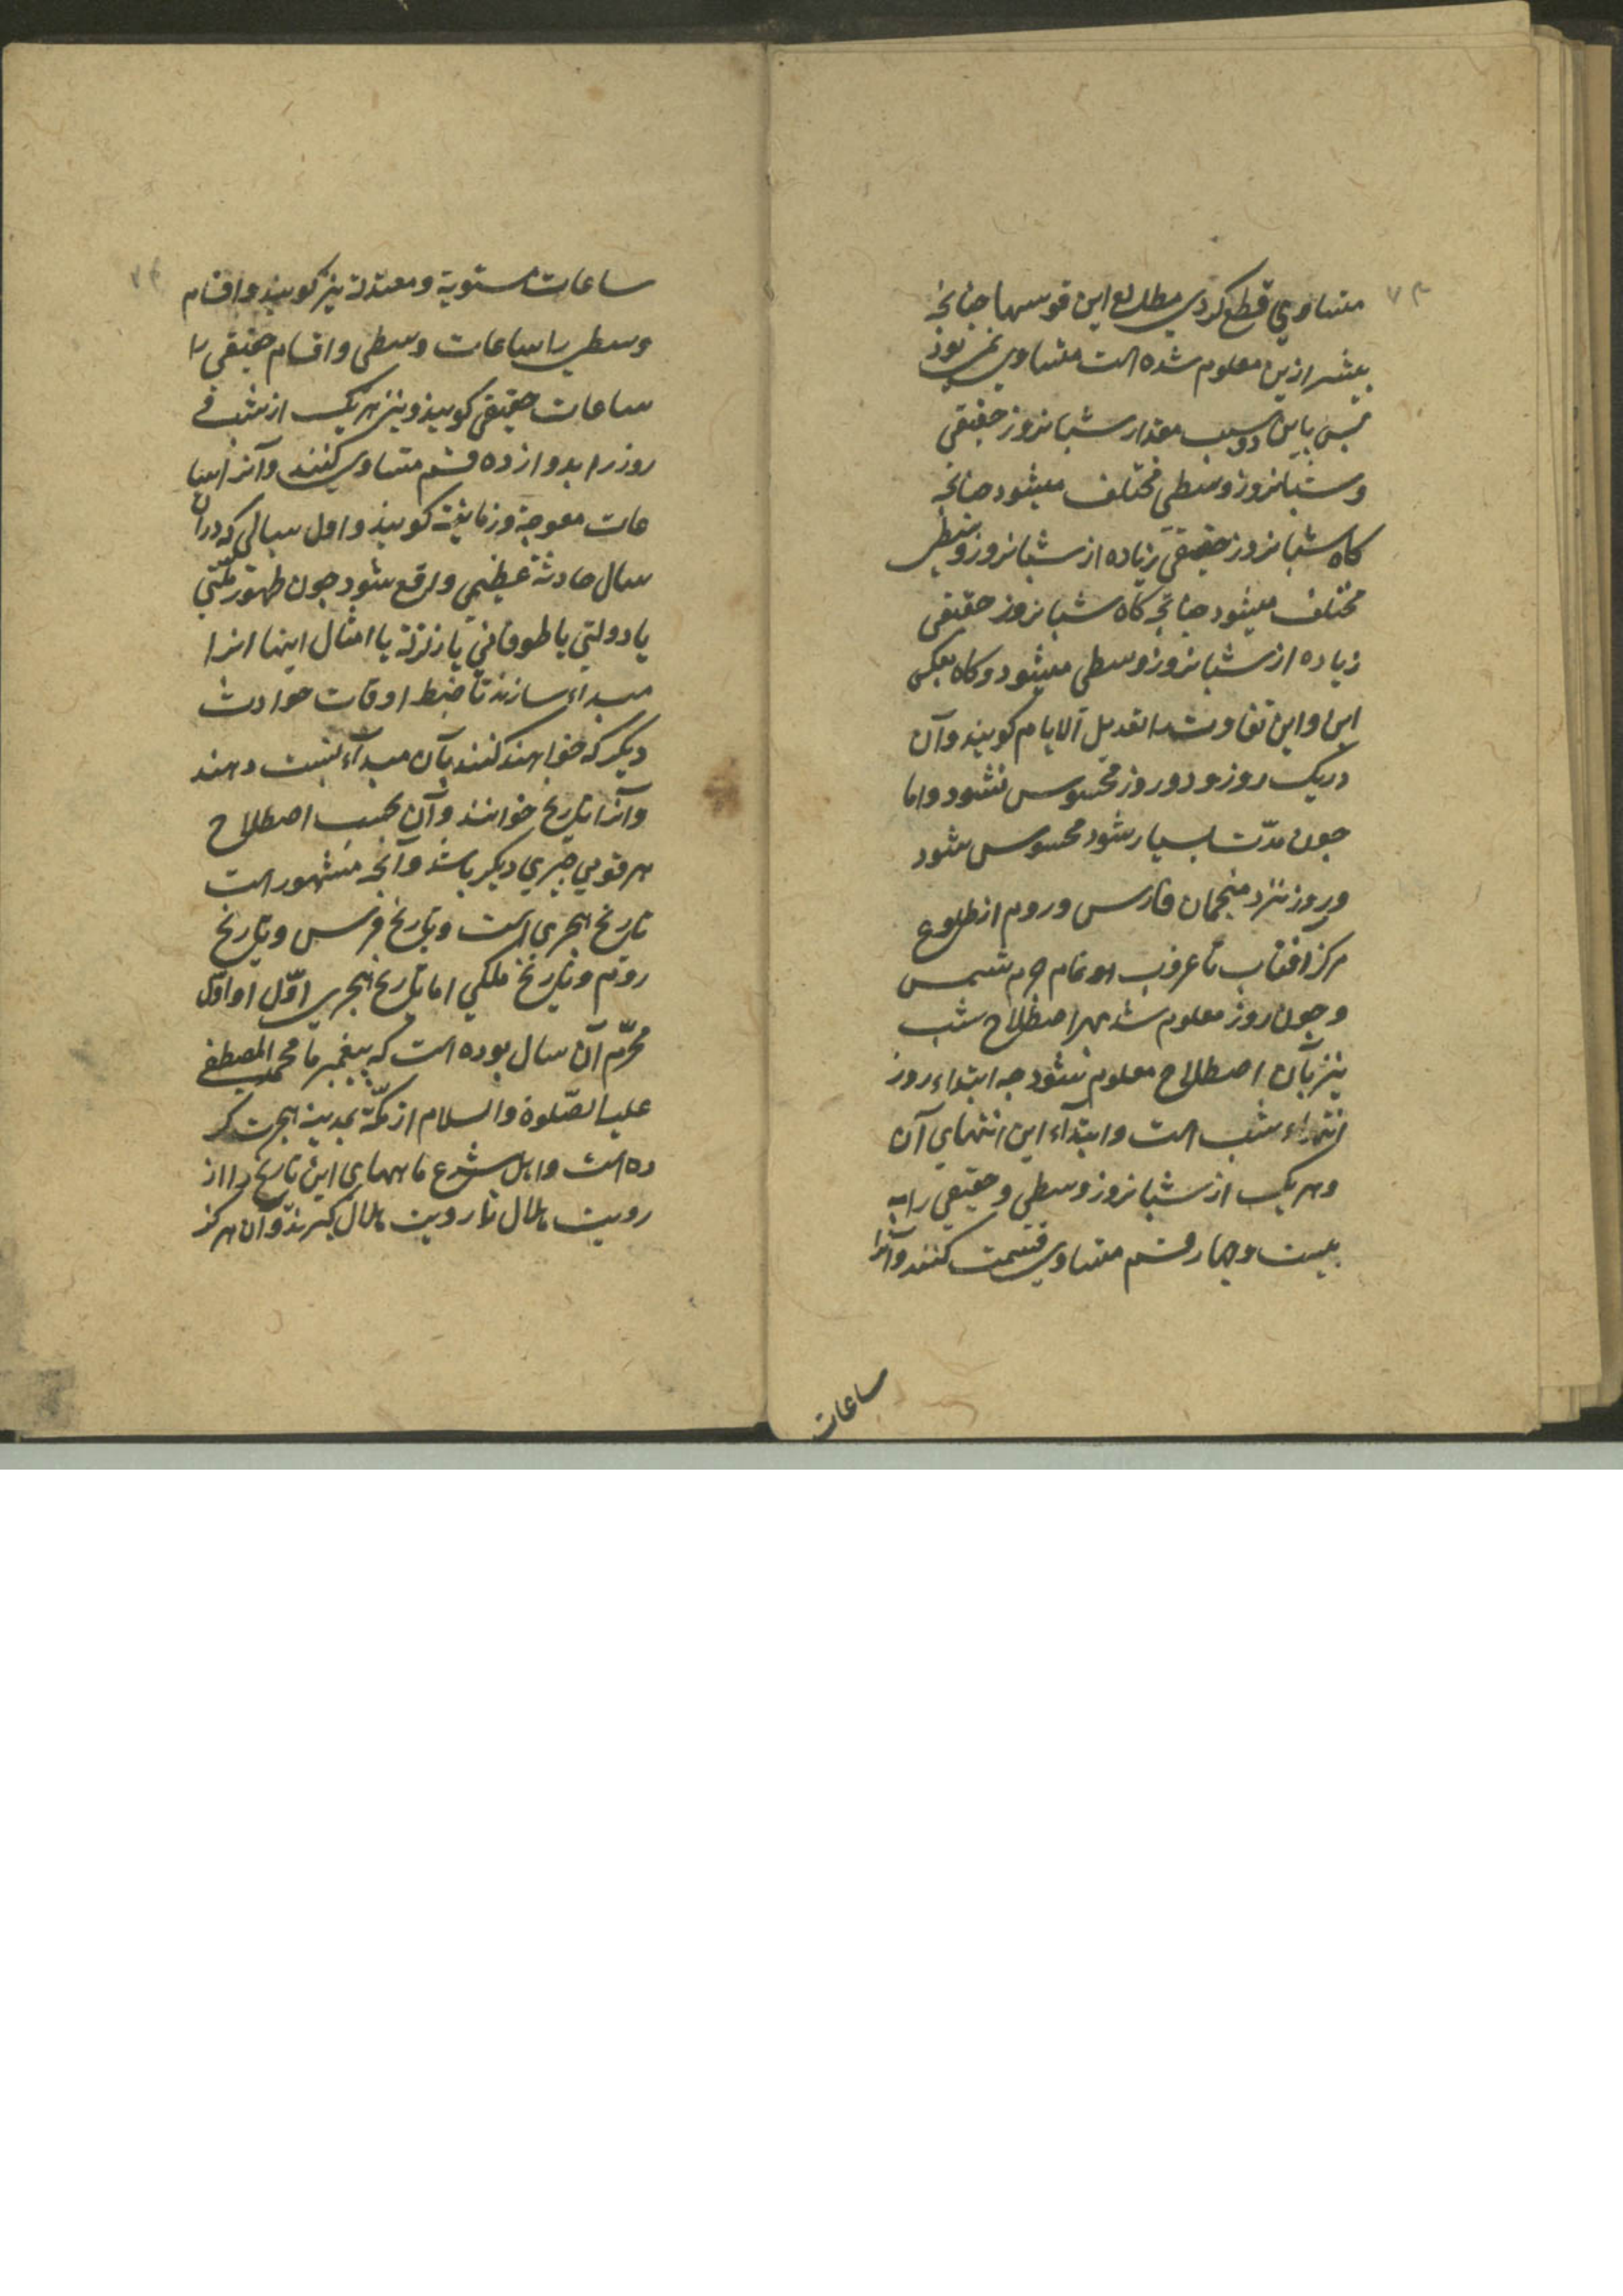 ۷۳
متساوي قطع كردي مطالع اين قوسها جنانجه
بيشتر ازين معلوم شده است متساوي نمي بوذ
بس باين دو سبب مقدار شبانروز حقيقى
وشبانروز وسطى مختلف ميشود جنانجه
كاه شبانروز حقيقى زياده از شبانروز وسطى
مختلف ميشود جنانجه كاه شبانروز حقيقى
زياده از شبانروز وسطى ميشود وكاه بعكس
اين واين تفاوت را تعديل الايام كويند وآن
دريك روز ودوروز محسوس نشود واما
جون مدّت بسيار شود محسوس شود
وروز نزد منجمان فارس وروم از طلوع
مركز افتاب تا غروب او تمام جرم شمس
وجون روز معلوم شد بهر اصطلاح شب
نيز بآن اصطلاح معلوم شود جه ابتداء روز
انتهاء شب است وابتداء اين انتهاي آن
وهريك از شبانروز وسطى وحقيقي را به
بيست وجهار قسم متساوي قسمت كنند وآنرا
ساعات
۷۴
ساعات مستوية ومعتدلة نيز كويند واقسام
وسطى را ساعات وسطى واقسام حقيقى را
ساعات حقيقى كويند ونيز هريك از شب و
روز را بدوازده قسم متساوي كنند وآنرا سا
عات معوجة وزمانية كويند واول سالى كه دران
سال حادثة عظيمى واقع شود جون ظهور ملّتي
يا دولتي يا طوفاني يا زلزلة يا امثال اينها انرا
مبداء سازند تا ضبط اوقات حوادث
ديكر كه خواهند كنند بآن مبداء نسبت دهند
وآنرا تاريخ خوانند وآن بحسب اصطلاح
هر قومي جيزي ديكر باشد وآنجه مشهور است
تاريخ هجري است وتاريخ فرس وتاريخ
روم وتاريخ ملكي اما تاريخ هجري اوّل او اوّل
محرّم آن سال بوده است كه پيغمبر ما محمد المصطفى
عليه الصّلوة والسلام از مكّة بمدينه هجرت كر
ده است واهل شرع ماههاى اين تاريخ را از
رويت هلال تا رويت هلال كيرند وآن هركز